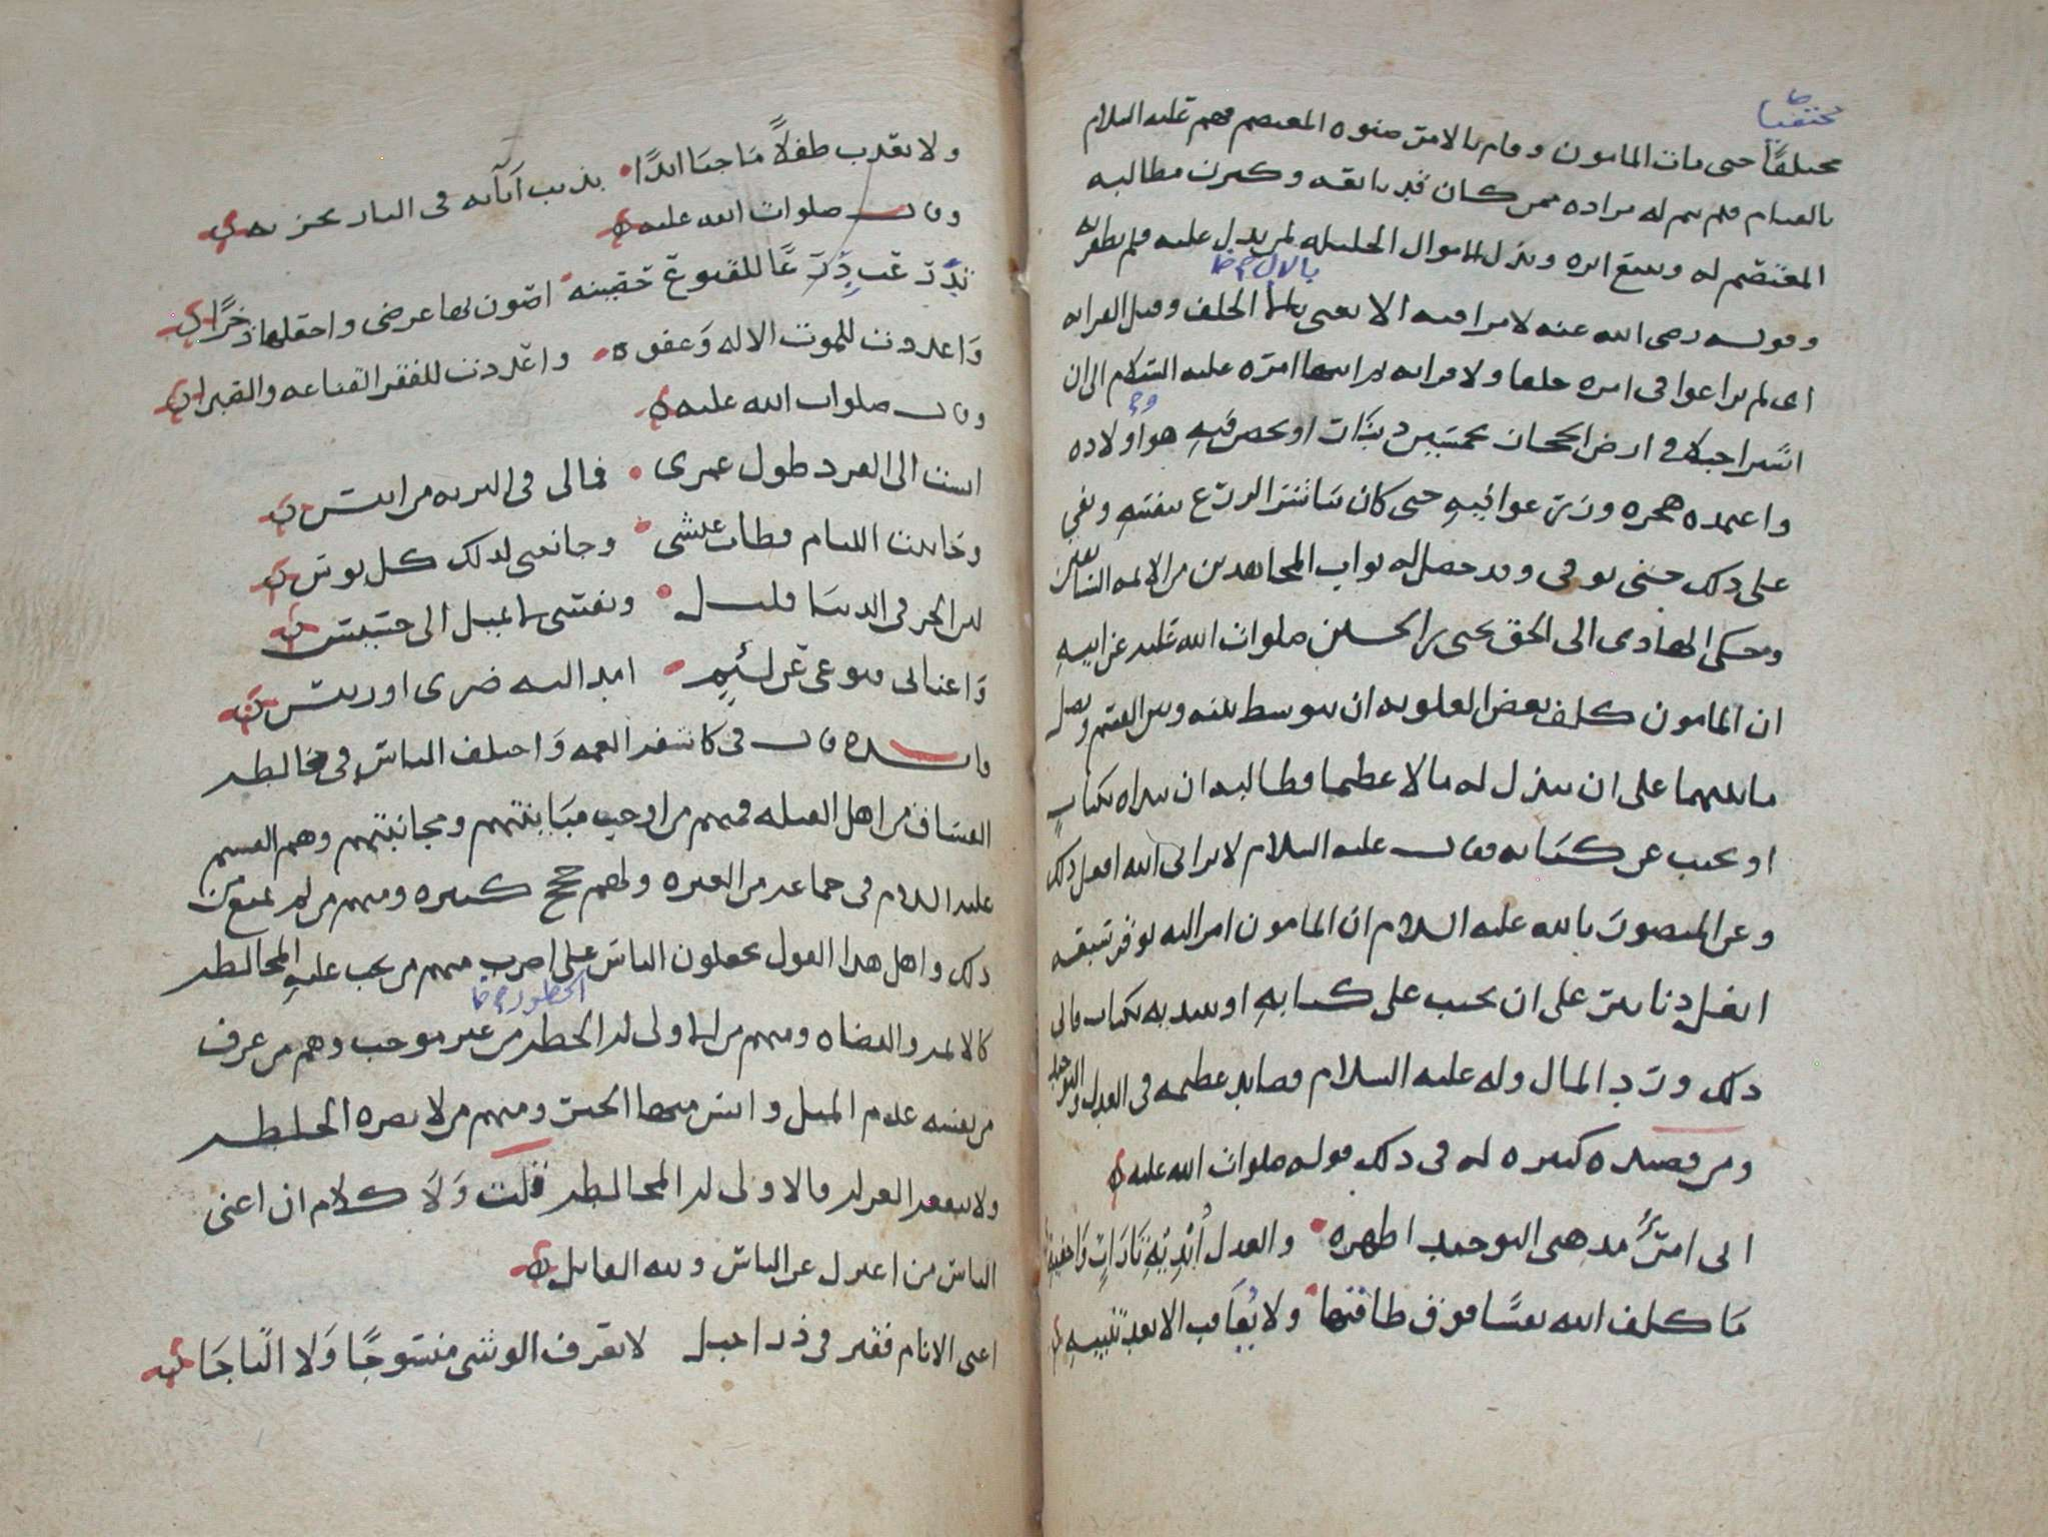 مختفيا
مختلفًا حتى مات المامون وقام بالامر صنوه المعتصم فهم عليه السلام
بالقيام فلم يتم له مراده ممن كان قد بايعه وكثرت مطالبه
المعتصم له وتتبع اثره وبذل الاموال الجليله لمن يدل عليه فلم يظفر به
بالال
وقوله رضى الله عنه لا يراقبه الا يعنى بالا الحلف وقيل القرابه
اى لم يراعوا فى امره حلفا ولا قرابه امره عليه السلام الى ان
اشترا جبلا فى ارض الحجاز بخمسين دينارًا وتحصن فيه هو واولاده
على ذلك حتى توفى وقد حصل له ثواب المجاهدين من الائمه السابقين
وحكى الهادى الى الحق يحيى بن الحسين صلوات الله عليه عن ابيه
ان المامون كلف بعض العلويه ان يتوسط بينه وبين القسم ويصل
ما بينهما على ان يبذل له مالا عظيما فطالبه ان يبداه بكتاب
او يجيب عن كتابه فقال عليه السلام لا يرانى الله افعل ذلك
وعن المنصور بالله عليه السلام ان المامون امر اليه بوقر سبعه
ابغل دنانير على ان يجيب على كتابه او يبديه بكتاب فابى
ذلك ورد المال وله عليه السلام قصايد عظيمه فى العدل والتوحيد
ومن قصيده كبيره له فى ذلك قوله صلوات الله عليه
انى امرؤ مذهبى التوحيد اظهره والعدل
مَا كلف الله نفسًا فوق طاقتها ولا يُعاقب الا بعد تنبيه
ولا يعذب طفلاً مَا جنا ابدًا بذنب آبائه فى النار يخزيه
وقال صلوات الله عليه
للقنوع حصينه اصون بها عرضى واجعلها ذخرًا
وَاعددت للموت الاله وَعفوه واعددت للفقر القناعه والصبرا
وقال صلوات الله عليه
انست الى التفرد طول عمرى فمالى فى البريه من انيس
وخانيت اللئام فطاب عيشى وجانبنى لذلك كل بوس
لان الحر فى الدنيا قليل ونفسى لا تميل الى خسيس
وَاغنانى قنوعى عن لئيمٍ امد اليه ضرى او رئيس
فايده قال فى كاشفه الغمه وَاختلف الناس فى مخالطه
الفساق من اهل القبله فمنهم من اوجب مباينتهم ومجانبتهم وهم القسم
عليه السلام فى جماعه من العتره ولهم حجج كثيره ومنهم من لم يمنع من
ذلك واهل هذا القول يجعلون الناس على اضرب منهم من يجب عليه المخالطه
الخطور
كالائمه والقضاه ومنهم من الاولى له الخطر من غير موجب وهم من عرف
من نفسه عدم الميل وانس منها الخير ومنهم من لا يضره الخلطه
ولا ينفعه العزله فالاولى له المخالطه قلت وَلَا كلام ان اغنى
الناس من اعتزل عن الناس ولله القايل
اغنى الانام فقير فى ذرا جبل لا يعرف الوشى منسوجًا وَلا التاجَا